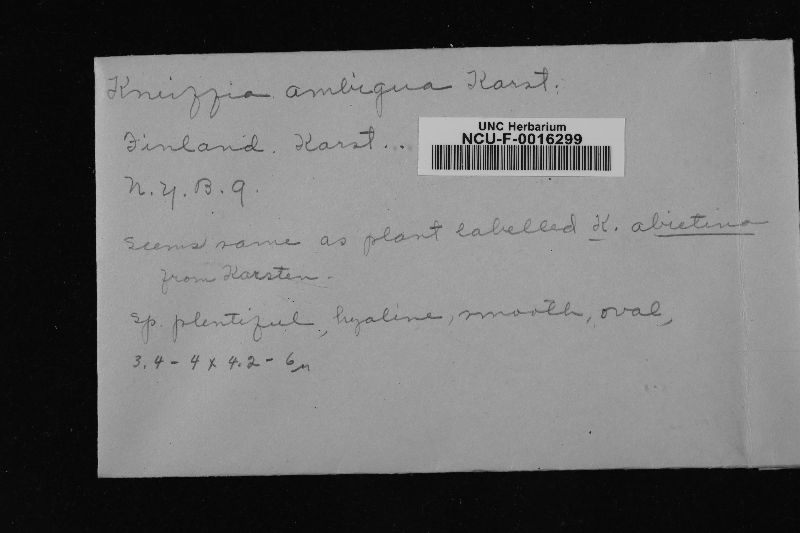 Kneiffia ambigua Karst.
Finland. Karst..
UNC Herbarium
NCU-F-0016299
N.Y.B.G.
Seems same as plant labelled K. abietina
from Karsten.
Sp. plentiful, hyaline, smooth, oval,
3.4 - 4 x 4.2 - 6 µ